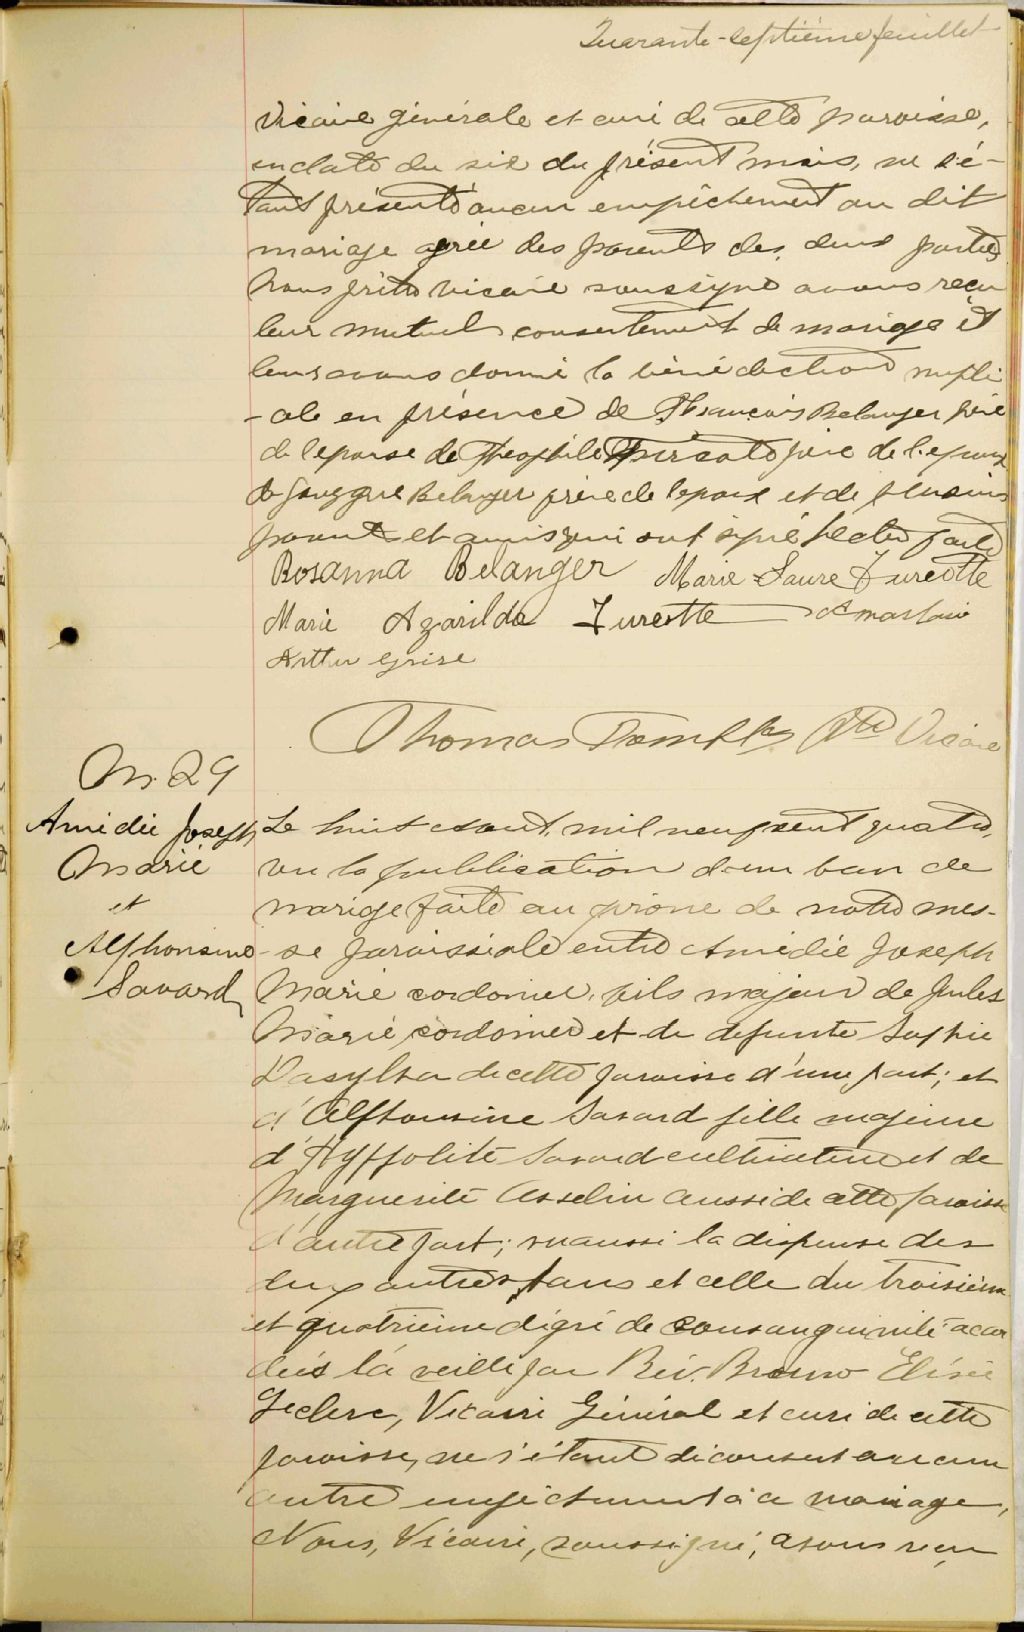 Quarante-septième feuillet
Vicaire générale et curé de cette paroisse,
en date du six du présent mois, ne s'é-
tant présenté aucun empêchement au dit
mariage agréé des parents des deux parties
Nous prêtre vicaire soussigné avons reçu
leur mutuel consentement de mariage et
leurs avons donné la bénédiction nupti
-ale en présence de François Belanger père
de l'epouse de Theophile Turcotte père de l'epoux
de Belanger frère de l'epoux et de plusieurs
parents et amis qui ont signé lecture faite
Rosanna Belanger Marie Laure Turcotte
Marie Azarilda Turcotte
Arthur Grise
Thomas Ptre Vicaire
M. 29
Amédée Joseph
Marié
et
Alphonsine
Savard
Le huit aout, mil neuf cent quatre,
vu la publication d'un ban de
mariage faite au prône de notre mes-
-se paroissiale entre Amédée Joseph
Marié cordonier, fils majeur de Jules
Marié, cordonier et de defunte Sophie
Dasylva de cette paroisse d'une part; et
d'Alphonsine Savard fille majeure
d'Hyppolite Savard cultivateur et de
Marguerite Asselin aussi de cette paroisse
d'autre part; vu aussi la dispense des
deux autres bans et celle du troisième
et quatrième dégré de consanguinité accor
dées la veille par Rév. Bruno Elisée
Leclerc, Vicaire Général et curé de cette
paroisse, ne s'étant découvert aucun
autre empêchement à ce mariage,
Nous, Vicaire, soussigné, avons reçu